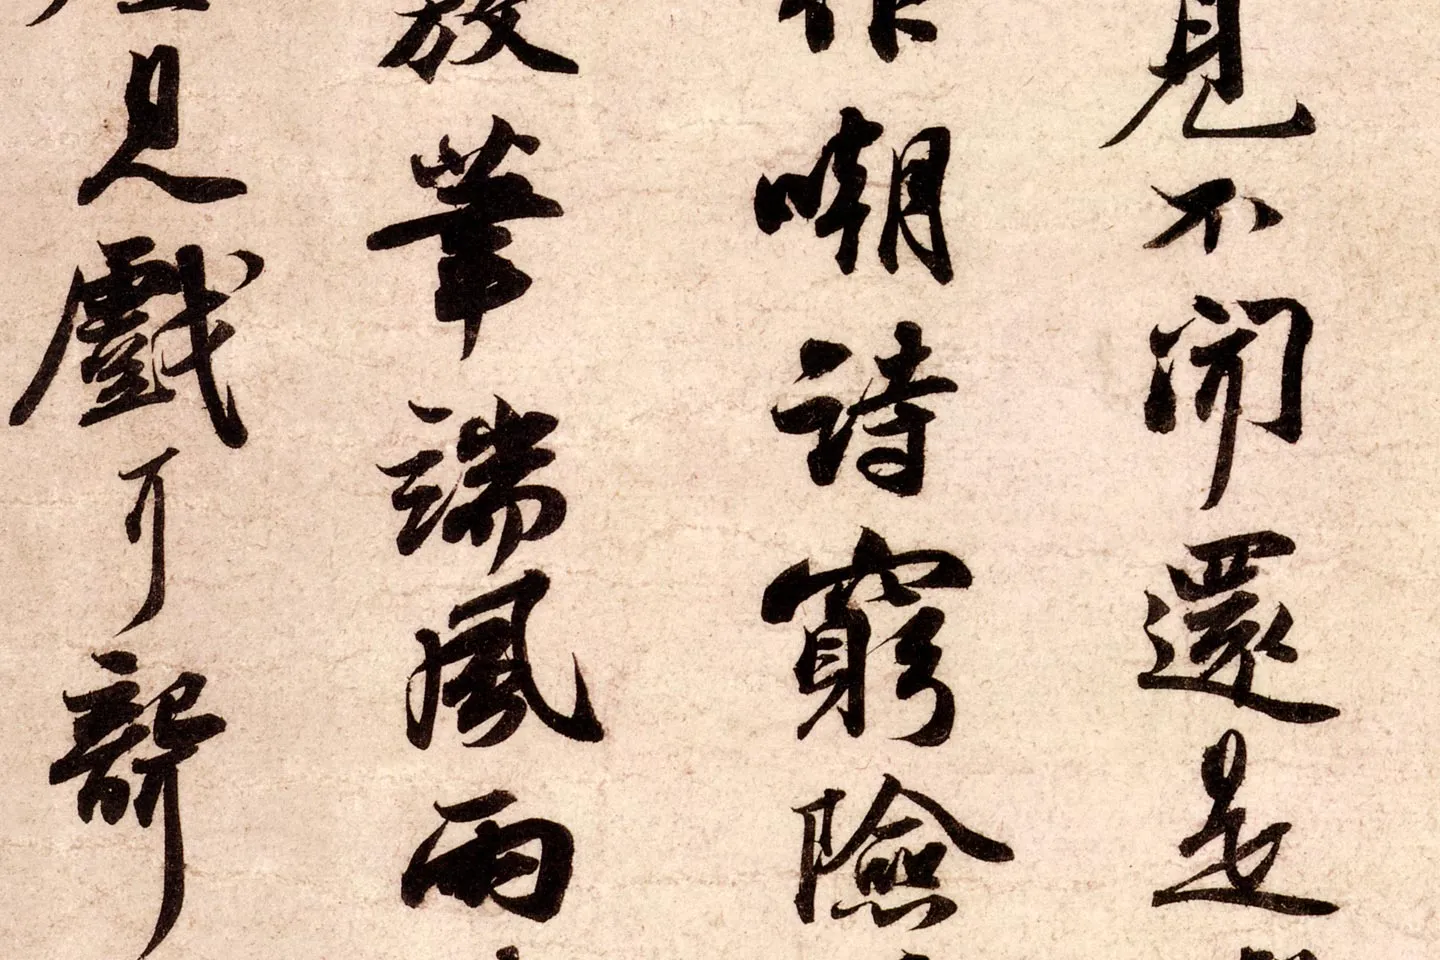 見不聞還是
作嘲詩窮險
放筆端風雨
見戲可